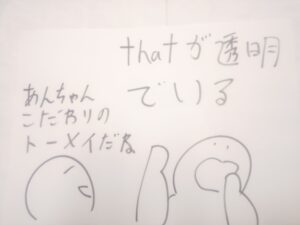 thatが透明
でいる
あんちゃん
こだわりの
トーメイだね